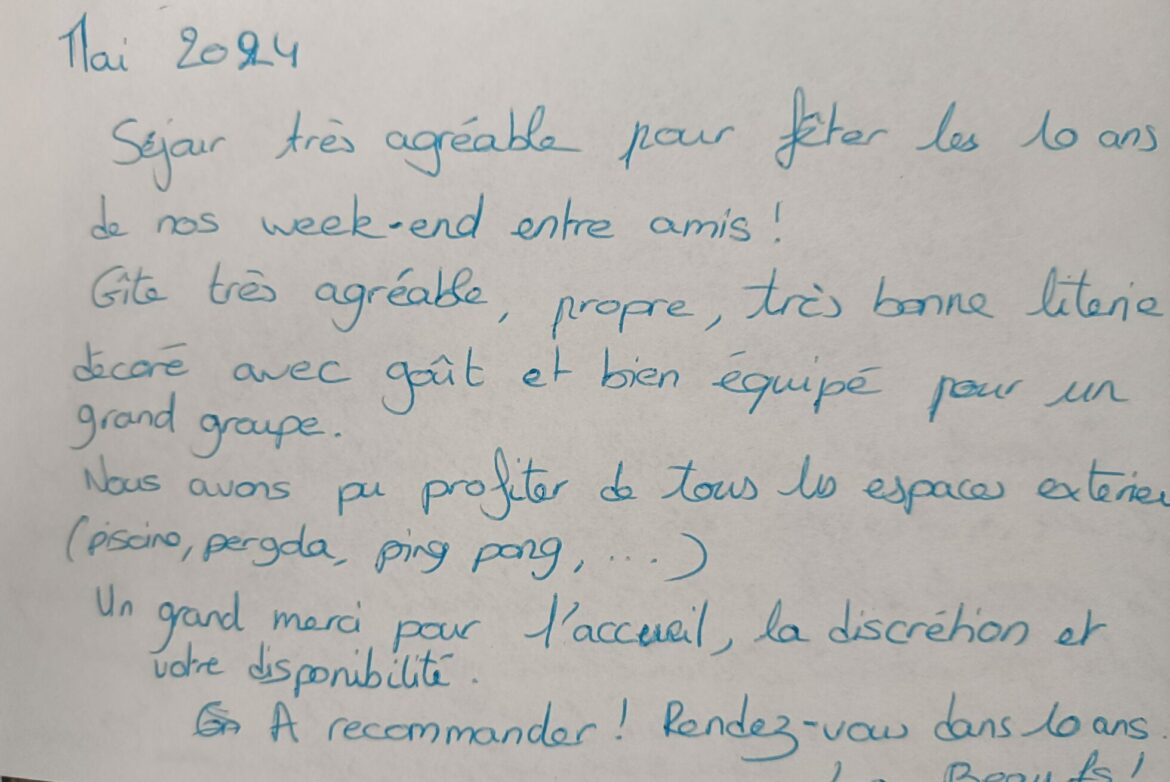 Mai 2024
Séjour très agréable pour fêter les 10 ans
de nos week-end entre amis !
Gîte très agréable, propre, très bonne literie
décoré avec goût et bien équipé pour un
grand groupe.
Nous avons pu profiter de tous les espaces extérieu
(piscine, pergola, ping pong, ...)
Un grand merci pour l'accueil, la discrétion et
votre disponibilité.
A recommander ! Rendez-vous dans 10 ans.